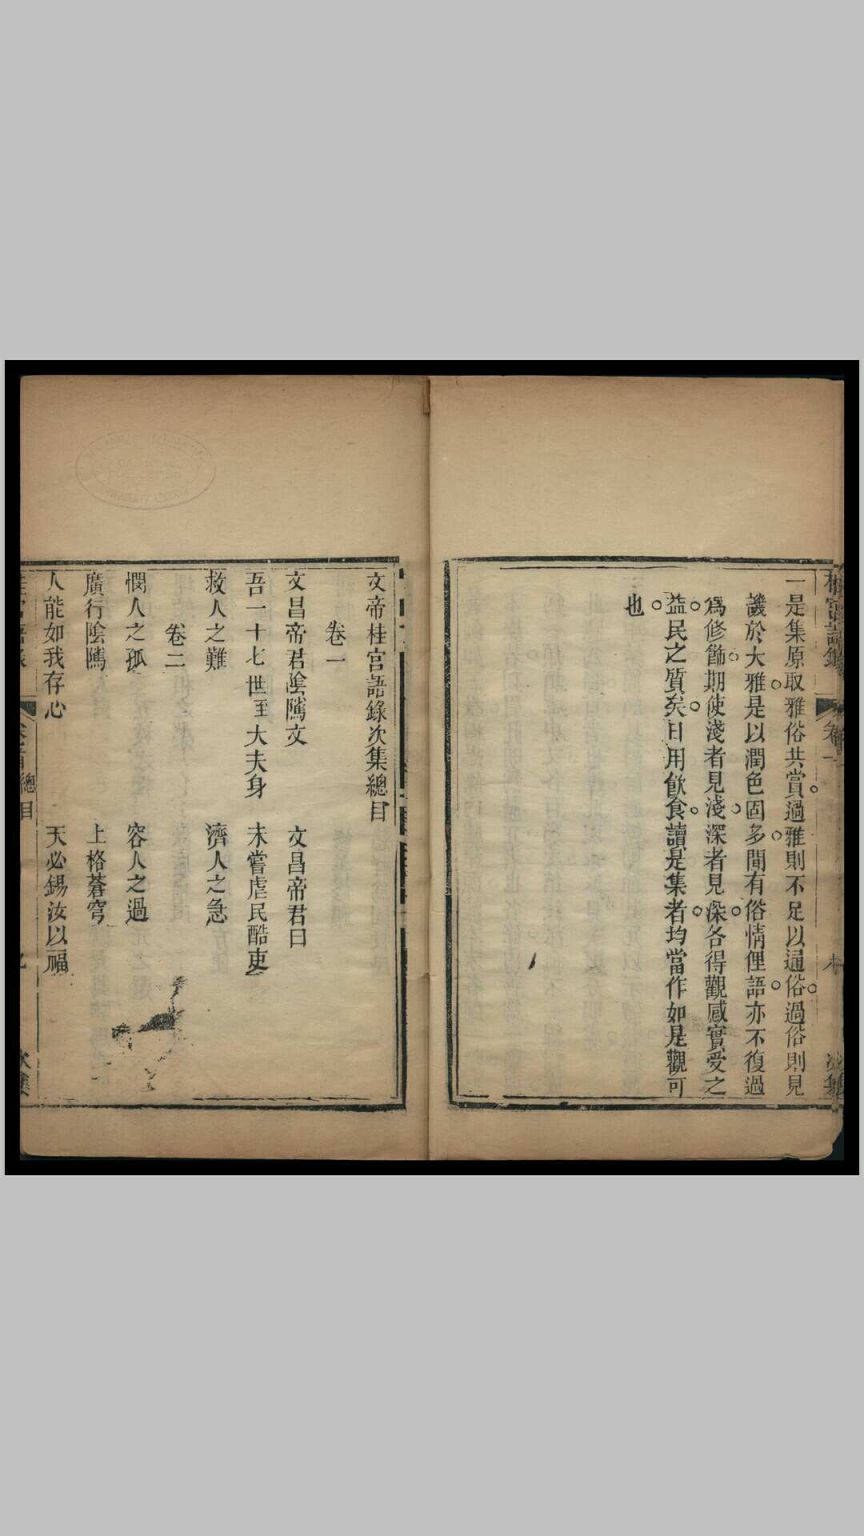 一是集原取雅俗共賞過雅則不足以通俗過俗則見
譏於大雅是以潤色固多間有俗情俚語亦不復過
爲修飾期使淺者見淺深者見深各得觀感實受之
益民之質矣日用飲食讀是集者均當作如是觀可
也
文帝桂宮語錄次集總目
卷一
文昌帝君陰隲文 文昌帝君曰
吾一十七世至大夫身 未嘗虐民酷吏
救人之難 濟人之急
卷二
憫人之孤 容人之過
廣行陰隲 上格蒼穹
人能如我存心 天必錫汝以福
總目